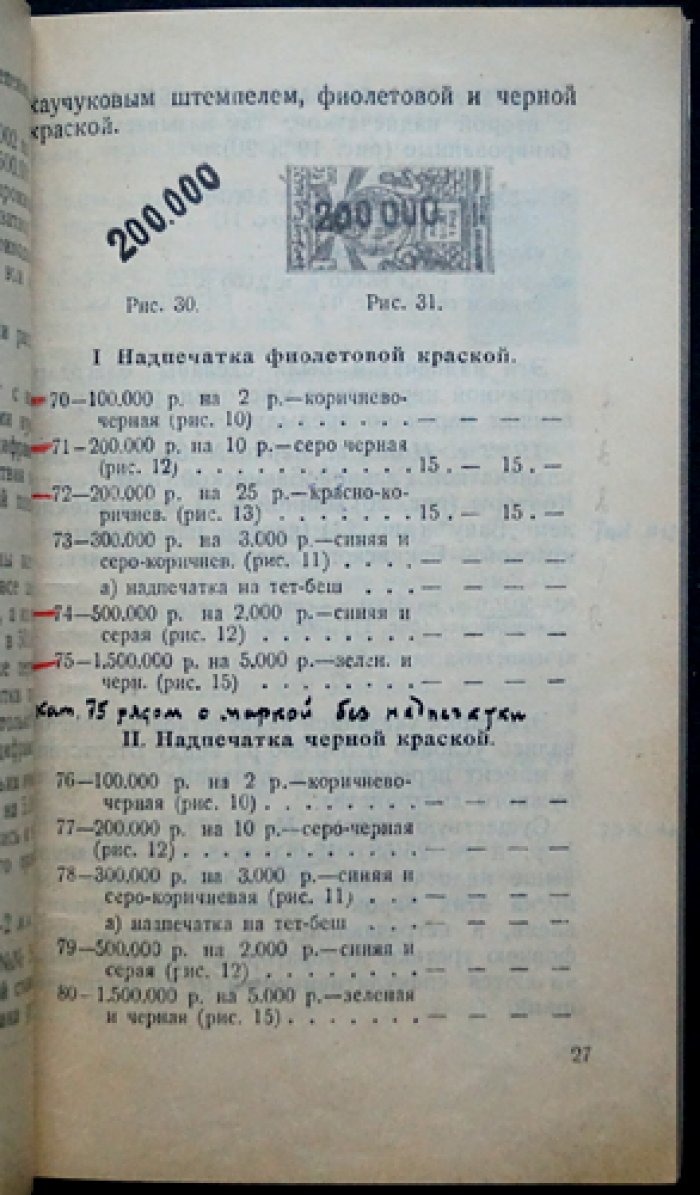 каучуковым штемпелем, фиолетовой и черной
краской.
200.000
200 000
Рис. 30.
Рис. 31.
I Надпечатка фиолетовой краской.
70—100.000 р. на 2 р.—коричнево-
черная (рис. 10) . . . . . . — — — —
71—200.000 р. на 10 р.—серо черная
(рис. 12) . . . . . . . . . . . 15 . — 15 . —
72—200.000 р. на 25 р.—красно-ко-
ричнев. (рис. 13) . . . . . . . 15 . — 15 . —
73—300.000 р. на 3.000 р.—синяя и
серо-коричнев. (рис. 11) . . . . — — — —
а) надпечатка на тет-беш . . . — — — —
74—500.000 р. на 2.000 р.—синяя и
серая (рис. 12) . . . . . . . . — — — —
75—1.500.000 р. на 5.000 р.—зелен. и
черн. (рис. 15) . . . . . . . — — — —
кат. 75 рядом с маркой без надпечатки
II. Надпечатка черной краской.
76—100.000 р. на 2 р.—коричнево-
черная (рис. 10) . . . . . . . . — — — —
77—200.000 р. на 10 р.—серо-черная
(рис. 12) . . . . . . . . . . . . — — — —
78—300.000 р. на 3.000 р.—синяя и
серо-коричневая (рис. 11) . . . — — — —
а) назпечатка на тет-беш . . . . — — — —
79—500.000 р. на 2,000 р.—синяя и
серая (рис. 12) . . . . . . . . — — — —
80—1.500.000 р. на 5.000 р.—зеленая
и черная (рис. 15) . . . . . . . — — — —
27